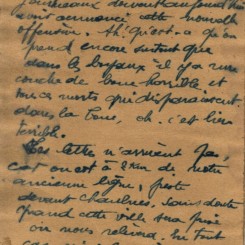 journaux doivent aujourd'hui
vont annoncer cette nouvelle
offensive. Ah! qu'est-ce qu'on
prend encore surtout que
dans les boyaux il y a une
couche de boue horrible et
tous morts qui disparaissent
dans la boue, oh. c'est bien
terrible.
Les lettres n'arrivent pas,
car on est à 2 Km de notre
ancienne ligne, juste
devant Chaulnes, sans doute
quand cette ville sera prise
on nous relèvera. En tout